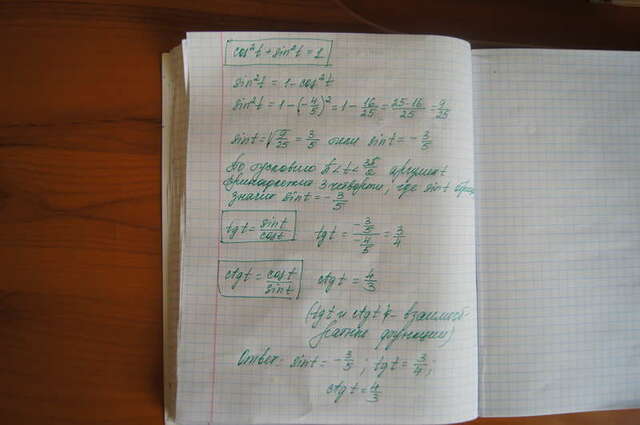 cos²t + sin²t = 1
sin²t = 1 - cos²t
sin²t = 1 - (-4/5)² = 1 - 16/25 = 25-16/25 = 9/25
sin t = √9/25 = 3/5 или sin t = - 3/5
По условию π < t < 3π/2 аргумент
принадлежит 3 четверти, где sin t
значит sin t = - 3/5
tg t = sin t/cos t tg t = -3/5/-4/5 = 3/4
ctg t = cos t/sin t ctg t = 4/3
(tg t и ctg t - взаимооб-
ратные функции)
Ответ: sin t = - 3/5; tg t = 3/4;
ctg t = 4/3